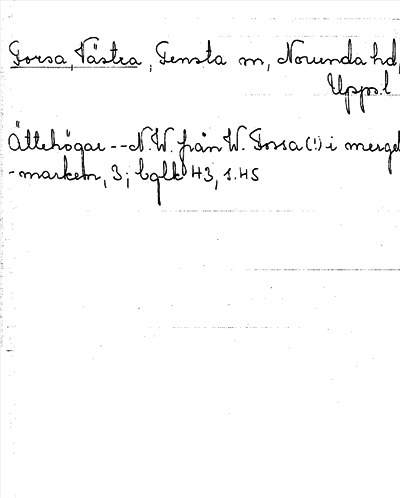 Forsa, Västra, Tensta sn, Norunda hd,
Upps. l
Ättehögar -- N.W. från W. Forsa (!) i mergel
-marken, 3; bqlk 43, s. 45